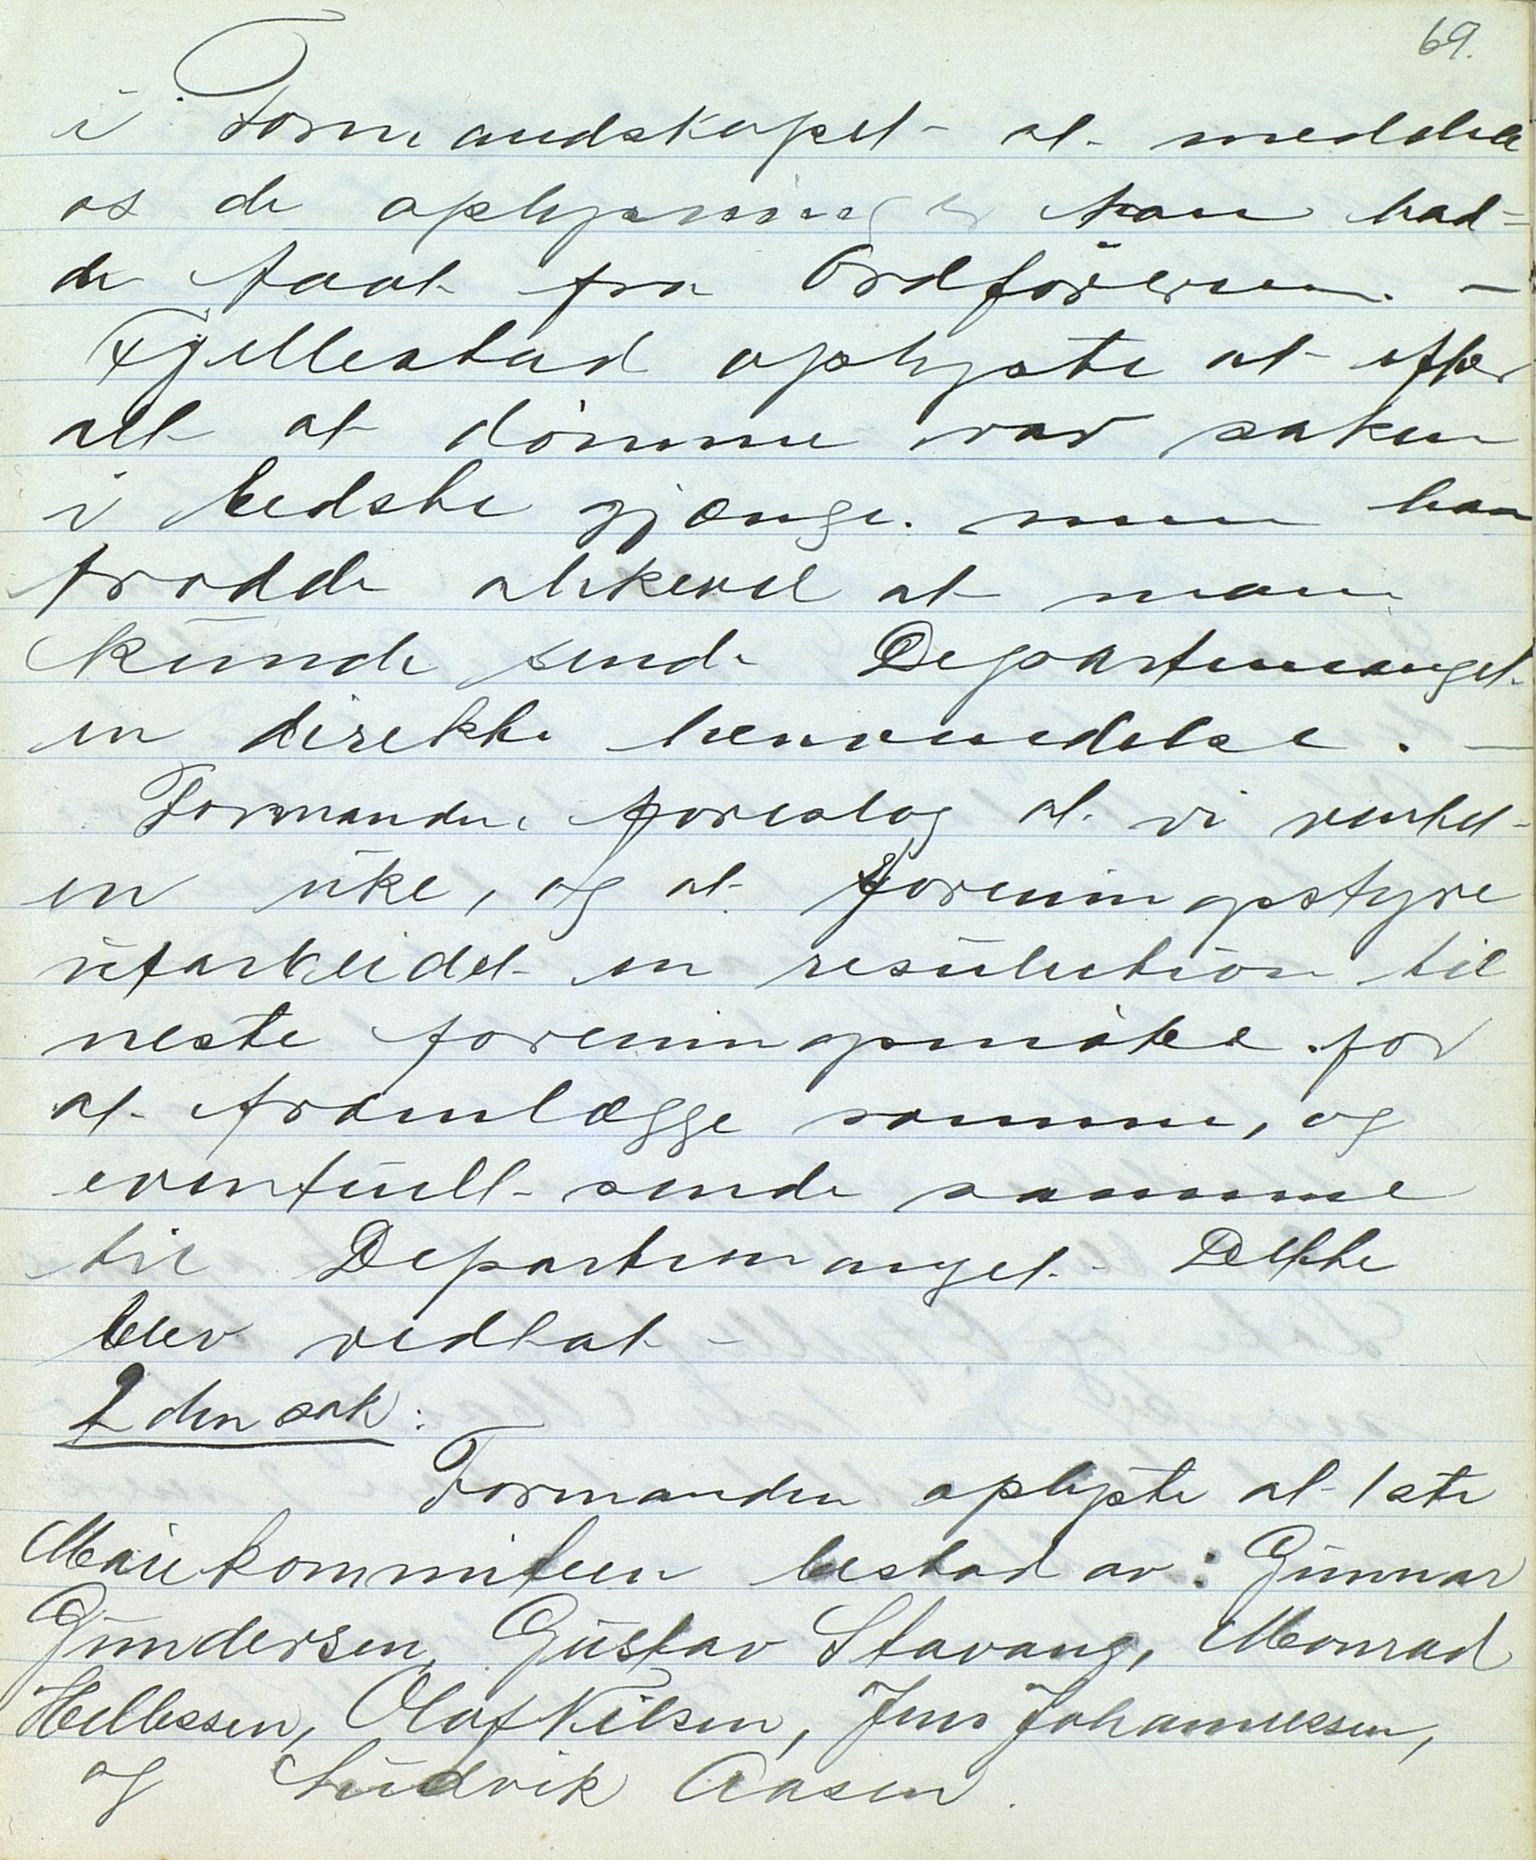 69.
i Formandskapet at meddele
os de oplysninger han had=
de faat fra Ordføreren. -
Fjellestad oplyste at efter
alt at dømme var saken
i bedste gjænge. men han
trodde alikevel at man
kunde sende Departemanget
en direkte henvendelse. -
Formanden foreslog at vi ventet
en uke, og at foreningsstyre
utarbeidet en resulution til
neste foreningsmøte for
at framlægge samme, og
eventuelt sende samme
til Departemanget. Dette
blev vedtat -
2 den sak:
Formanden oplyste at 1ste
Maikommiteen bestod av: Gunnar
Gundersen, Gustav Stavang, Monrad
Hellessen, Olaf Nilsen, Jens Johannessen,
og Ludvik Aasen.